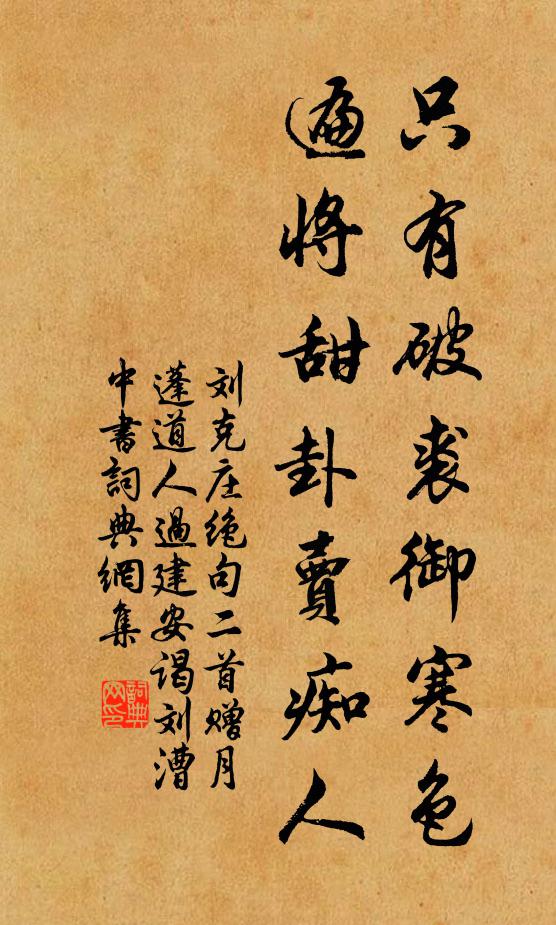 只有破裘御寒色
遍將甜卦賣痴人
刘克庄绝句二首赠月
蓬道人過建安谒刘漕
中書詞典網集
詞典网印